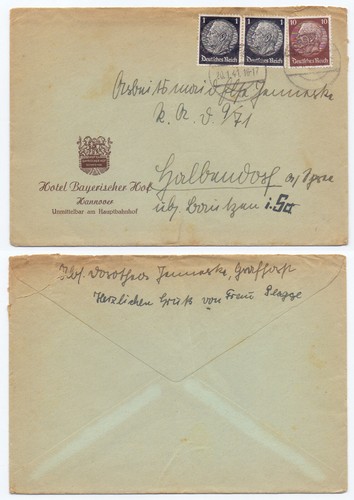 1 1 10
Deutsches Reich Deutsches Reich Deutsches Reich
.1.41.16-17
Arbeitsmaid Ilse Jannaske
K. A. d. 9/71
Halbendorf a/Spree
üb. Bautzen i. Sa
Hotel Bayerischer Hof
Hannover
Unmittelbar am Hauptbahnhof
Dorothea Jannaske, Grafhorst
Herzlichen Gruß von Frau Plagge